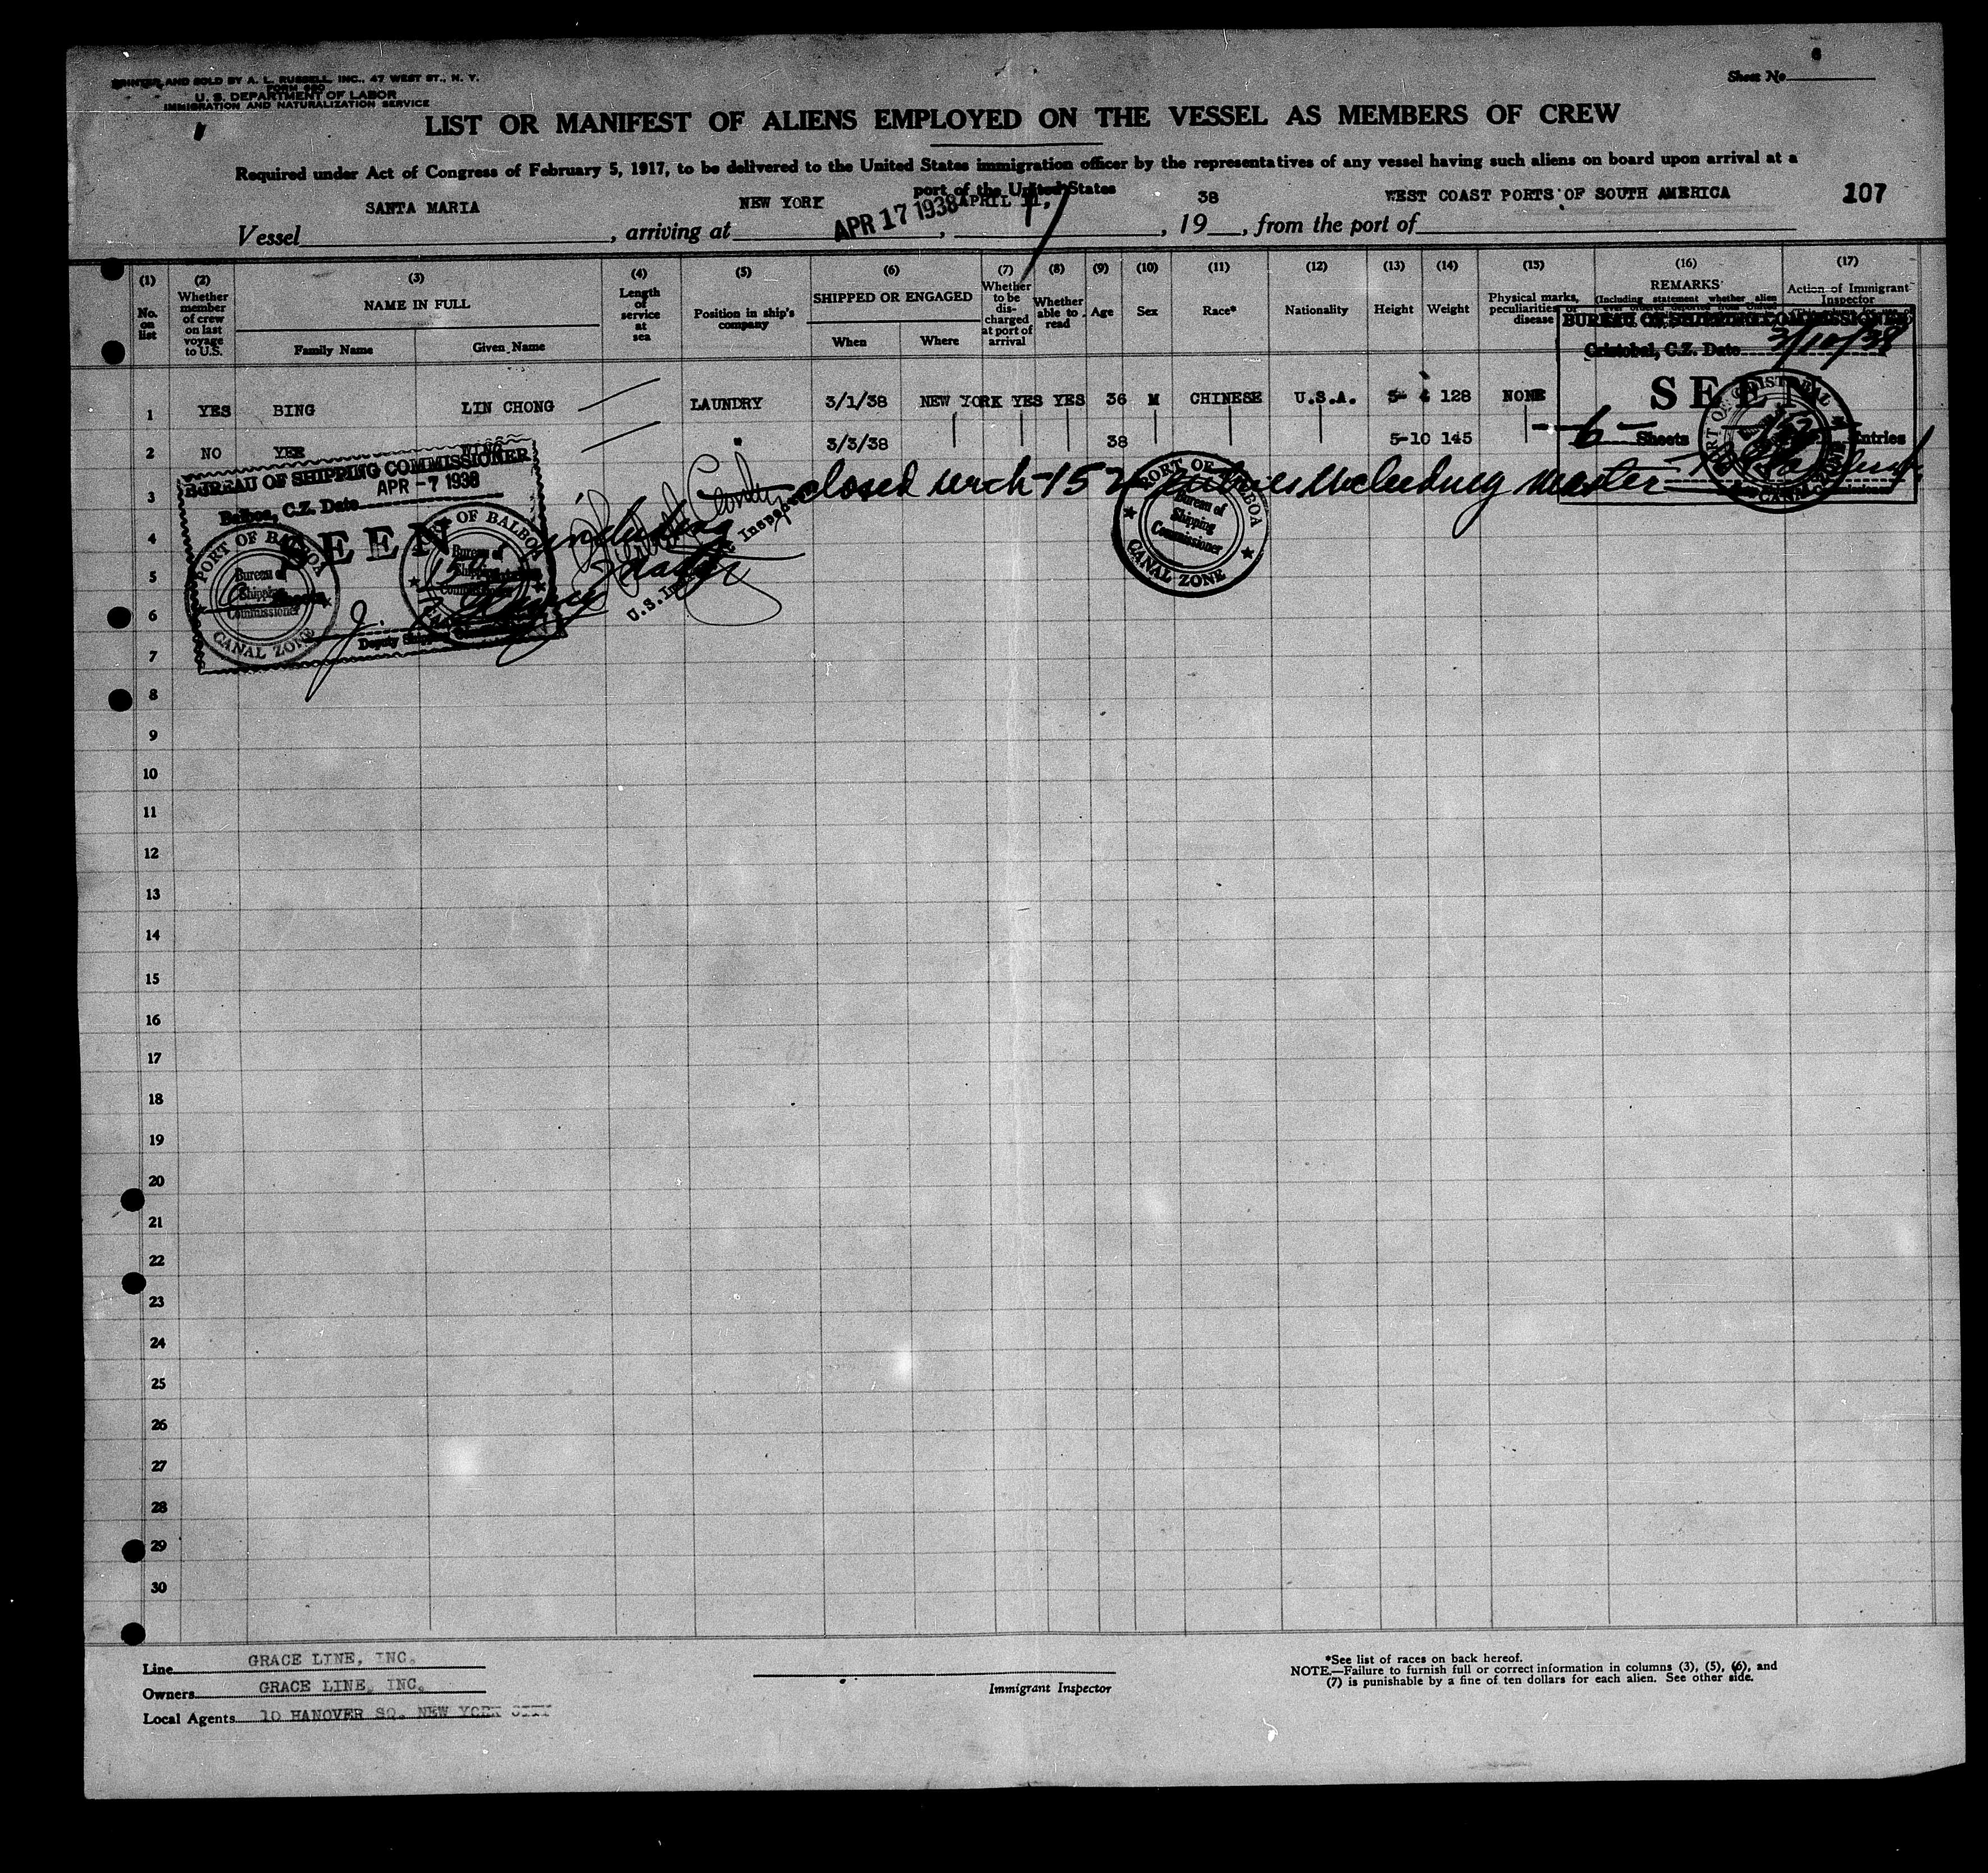 PRINTED AND SOLD BY A. L. RUSSELL, INC., 47 WEST ST., N. Y.
FORM 680
U. S. DEPARTMENT OF LABOR
IMMIGRATION AND NATURALIZATION SERVICE
Sheet No. 6
LIST OR MANIFEST OF ALIENS EMPLOYED ON THE VESSEL AS MEMBERS OF CREW
Required under Act of Congress of February 5, 1917, to be delivered to the United States immigration officer by the representatives of any vessel having such aliens on board upon arrival at a
port of the United States
107
Vessel SANTA MARIA, arriving at NEW YORK APR 17 1938, APRIL 17, 1938, from the port of WEST COAST PORTS OF SOUTH AMERICA
(1) No. on list
(2) Whether member of crew on last voyage to U.S.
(3) NAME IN FULL
Family Name Given Name
(4) Length of service at sea
(5) Position in ship's company
(6) SHIPPED OR ENGAGED
When Where
(7) Whether to be discharged at port of arrival
(8) Whether able to read
(9) Age
(10) Sex
(11) Race*
(12) Nationality
(13) Height
(14) Weight
(15) Physical marks, peculiarities or disease
(16) REMARKS
(Including statement whether alien ever ordered deported from United
(17) Action of Immigrant Inspector
BUREAU OF SHIPPING COMMISSIONER
Cristobal, C.Z. Date 3/10/38
SEEN
6 Sheets 152 Entries
1 YES BING LIN CHONG LAUNDRY 3/1/38 NEW YORK YES YES 36 M CHINESE U.S.A. 128 NONE
2 NO YEE WING " 3/3/38 38 5-10 145
closed with 152 entries including master
BUREAU OF SHIPPING COMMISSIONER
Balboa, C.Z. Date APR -7 1938
SEEN
including
Master
PORT OF BALBOA
Bureau of
Shipping
Commissioner
CANAL ZONE
PORT OF BALBOA
Bureau of
Shipping
Commissioner
Deputy Shipping
U.S. Inspector
PORT OF BALBOA
Bureau of
Shipping
Commissioner
CANAL ZONE
3
4
5
6
7
8
9
10
11
12
13
14
15
16
17
18
19
20
21
22
23
24
25
26
27
28
29
30
Line GRACE LINE, INC.
Owners GRACE LINE, INC.
Local Agents 10 HANOVER SQ. NEW YORK CITY
Immigrant Inspector
*See list of races on back hereof.
NOTE.—Failure to furnish full or correct information in columns (3), (5), (6), and
(7) is punishable by a fine of ten dollars for each alien. See other side.